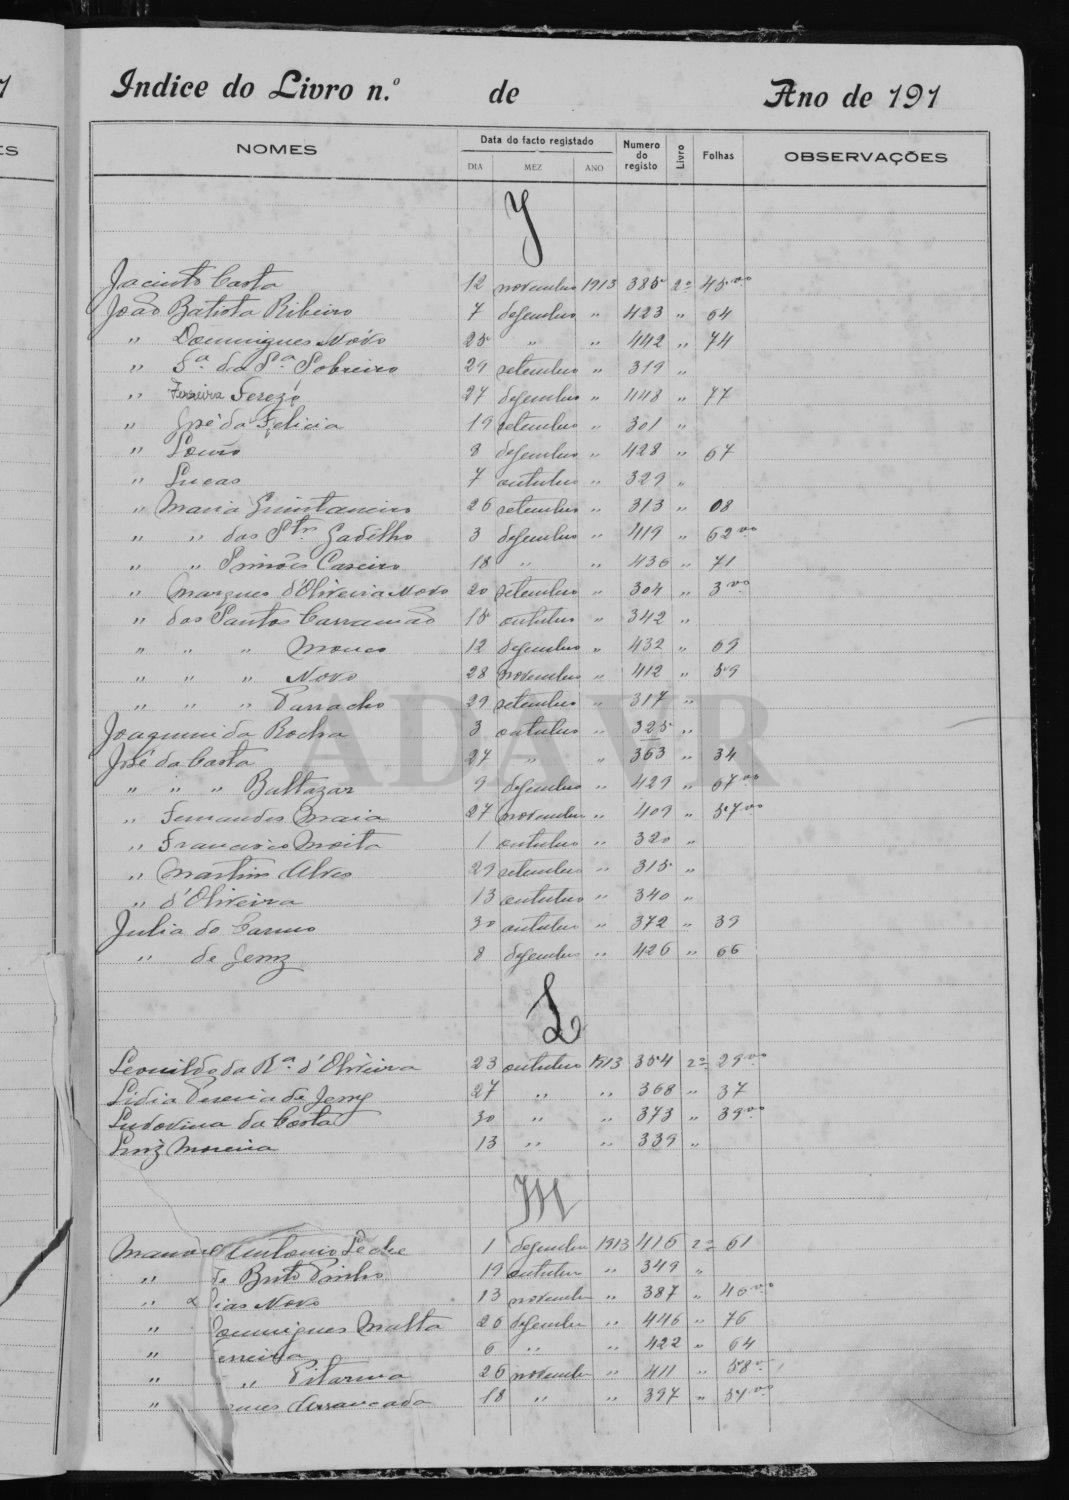 Indice do Livro n.º de Ano de 191
NOMES Data do facto registado Numero do registo Livro Folhas OBSERVAÇÕES
DIA MEZ ANO
J
Jacinto Costa 12 novembro 1913 385 2º 45 vº
João Batista Ribeiro 7 dezembro " 423 " 64
" Domingues Novo 25 " " 442 " 74
" S.ª da S.ª Sobreiro 29 setembro " 319 "
" Ferreira Ferezé 27 dezembro " 448 " 77
" José da Felicia 19 setembro " 301 "
" Louro 8 dezembro " 428 " 67
" Lucas 7 outubro " 329 "
" Maria 26 setembro " 313 " 08
" " dos S.tos Gadelho 3 dezembro " 419 " 62 vº
" " Simões Caseiro 18 " " 436 " 71
" Marques d'Oliveira Novo 20 setembro " 304 " 3 vº
" dos Santos Carramão 15 outubro " 342 "
" " " Mouco 12 dezembro " 432 " 69
" " " Novo 28 novembro " 412 " 59
" " " Parracho 29 setembro " 317 "
Joaquim da Rocha 3 outubro " 325 "
José da Costa 27 " " 363 " 34
" " " Baltazar 9 dezembro " 429 " 67 vº
" Fernandes Maia 27 novembro " 409 " 57 vº
" Francisco Moita 1 outubro " 320 "
" Martins Alves 29 setembro " 315 "
" d'Oliveira 13 outubro " 340 "
Julia do Carmo 30 outubro " 372 " 39
" de Jesus 8 dezembro " 426 " 66
L
Leonilde da R.ª d'Oliveira 23 outubro 1913 354 2º 29 vº
Lidia Pereira de Jesus 27 " " 368 " 37
Ludovina da Costa 30 " " 373 " 39 vº
Luiz Moreira 13 " " 339 "
M
Manoel Antonio Leche 1 dezembro 1913 416 2º 61
" de Brito Pinho 19 outubro " 349 "
" Dias Novo 13 novembro " 387 " 46 vº
" Domingues Malta 26 dezembro " 446 " 76
" Ferreira 6 " " 422 " 64
" " Pitarma 26 novembro " 411 " 58 vº
" Arrancada 18 " " 397 " 51 vº
ADAVR